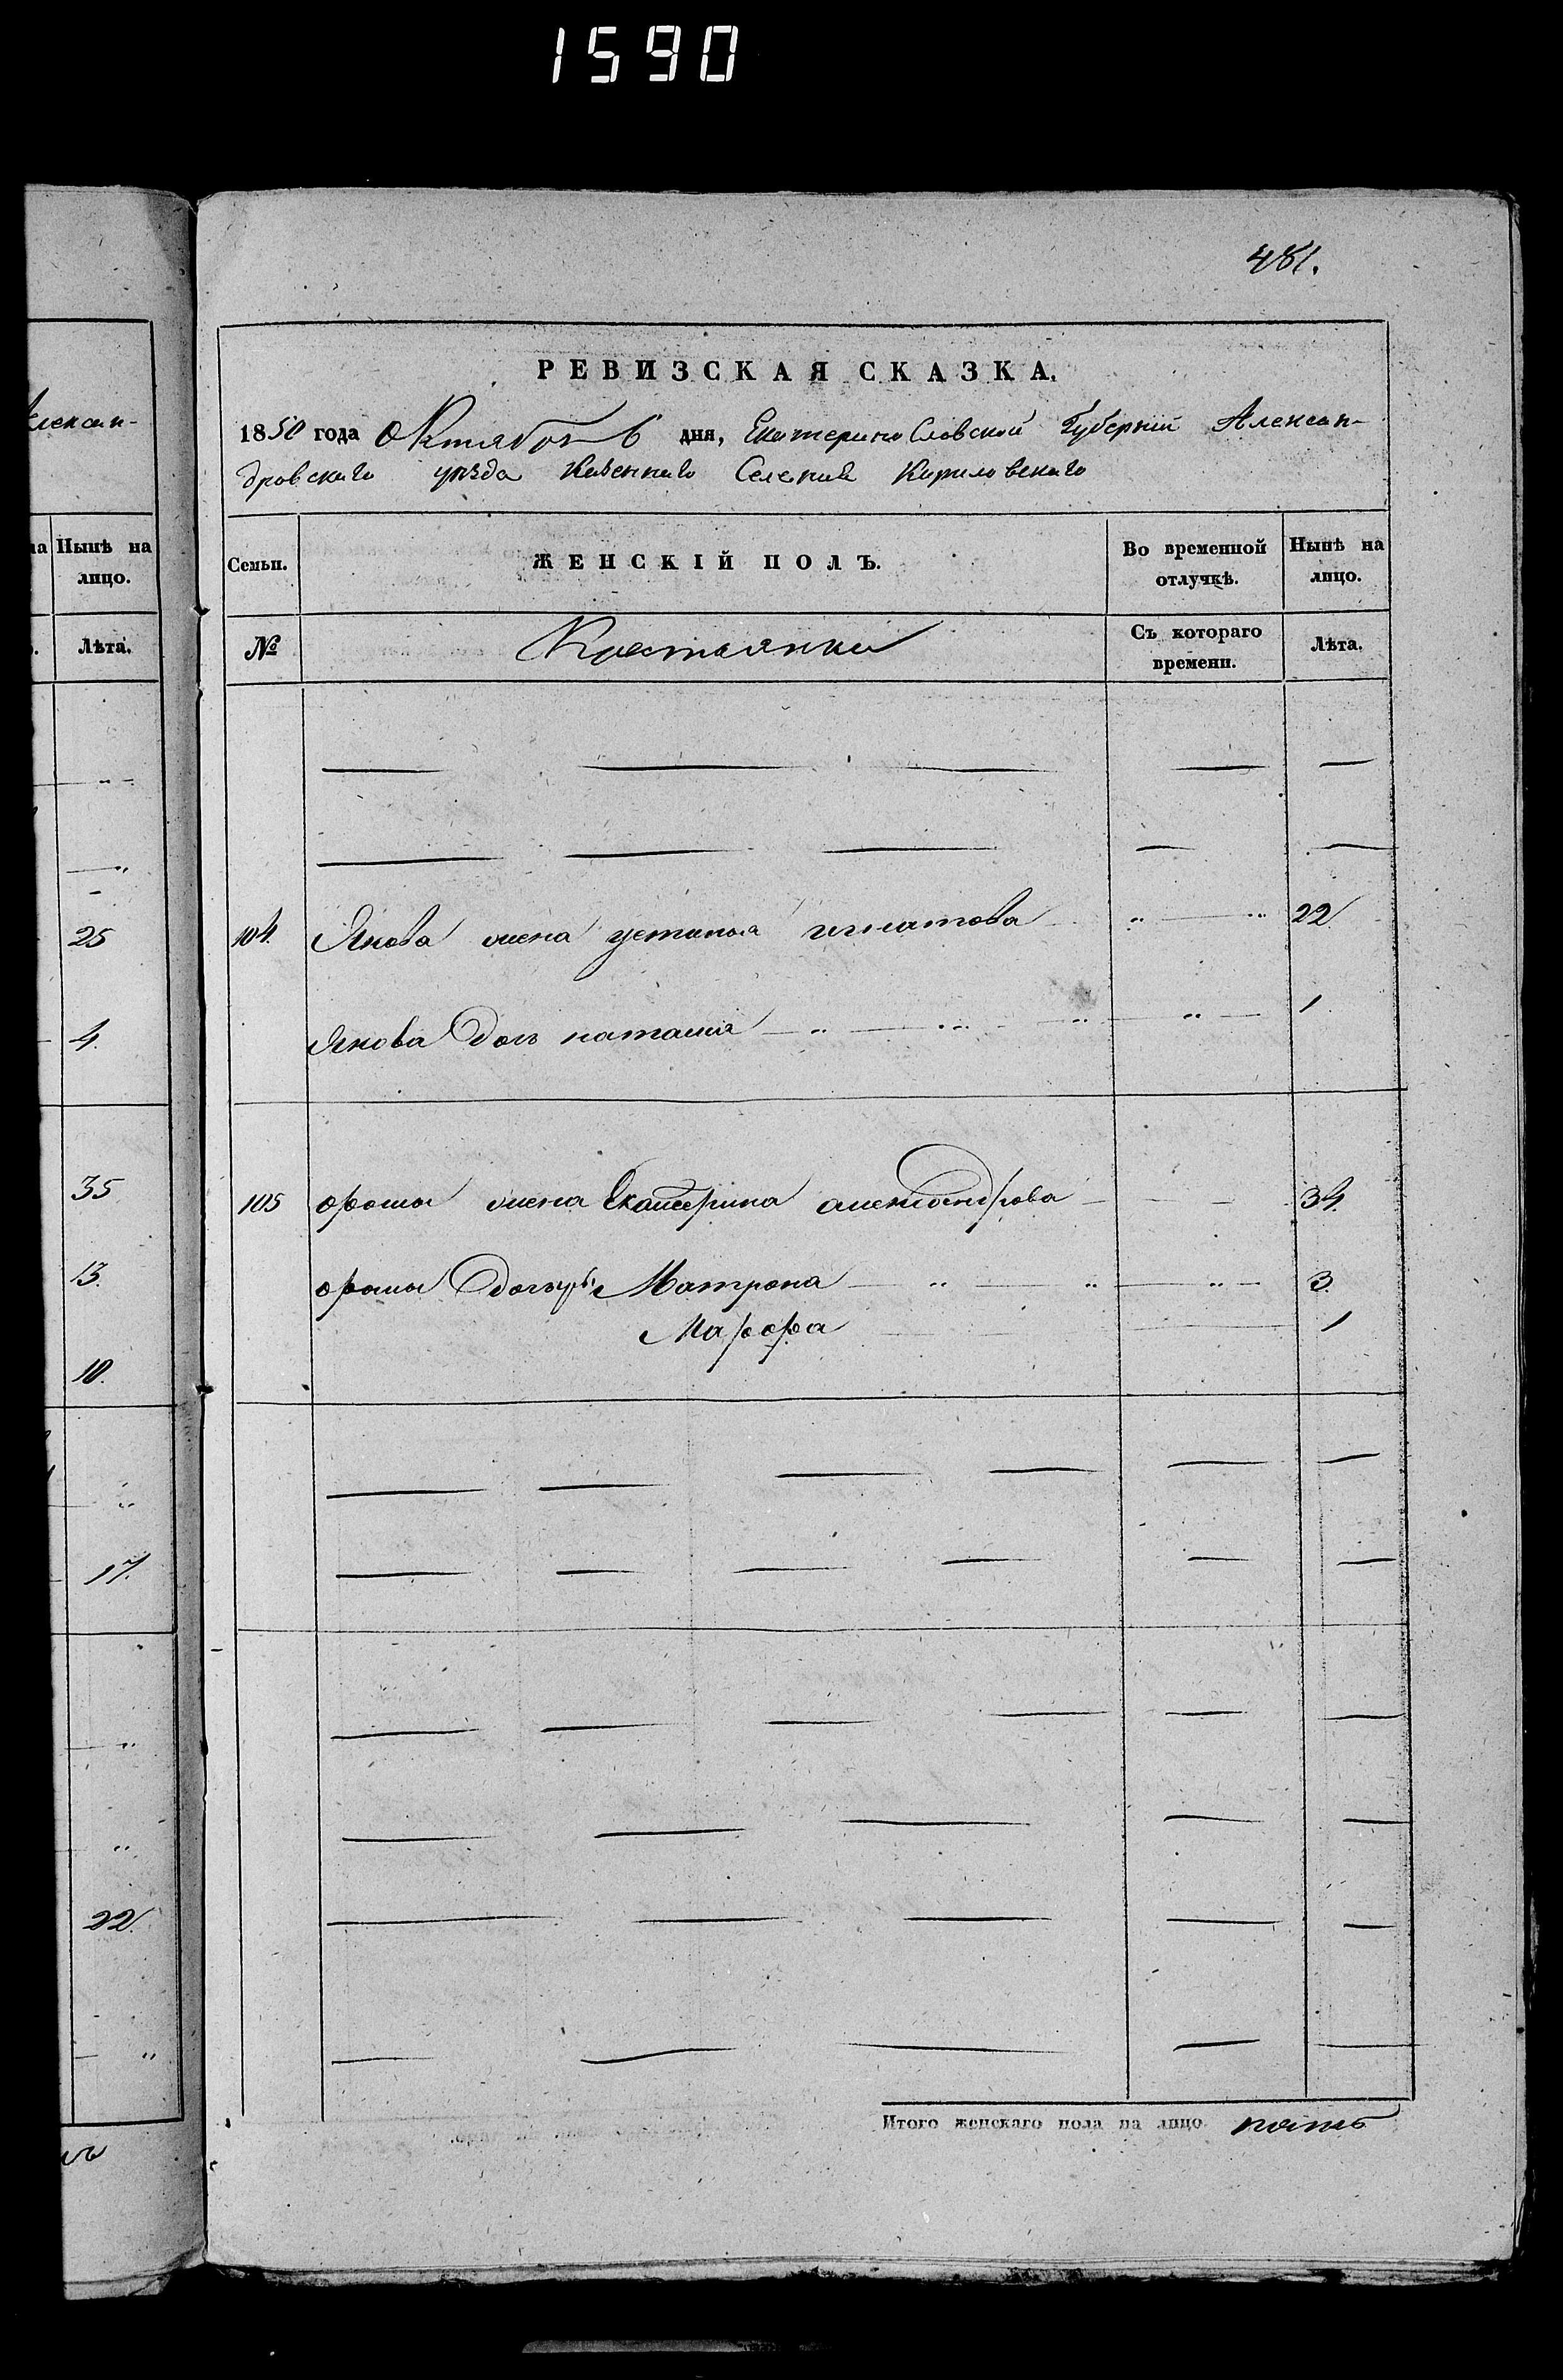 1590
481.
РЕВИЗСКАЯ СКАЗКА.
1850 года Октября 6 дня, Екатеринославской Губерніи Алексан-
дровскаго уѣзда Казеннаго Селенія Кириловскаго
Семьи. ЖЕНСКІЙ ПОЛЪ. Во временной отлучкѣ. Нынѣ на лицо.
№ Крестьянки Съ котораго времени. Лѣта.
104. Якова жена устинья игнатова 22
Якова дочь наталия 1
105 фомы жена Екатерина александрова 34.
фомы дочери Матрона 3.
Марфа 1
Итого женскаго пола на лицо пять
Алексан-
на Нынѣ на лицо.
Лѣта.
25
4.
35
13.
10.
17.
22.